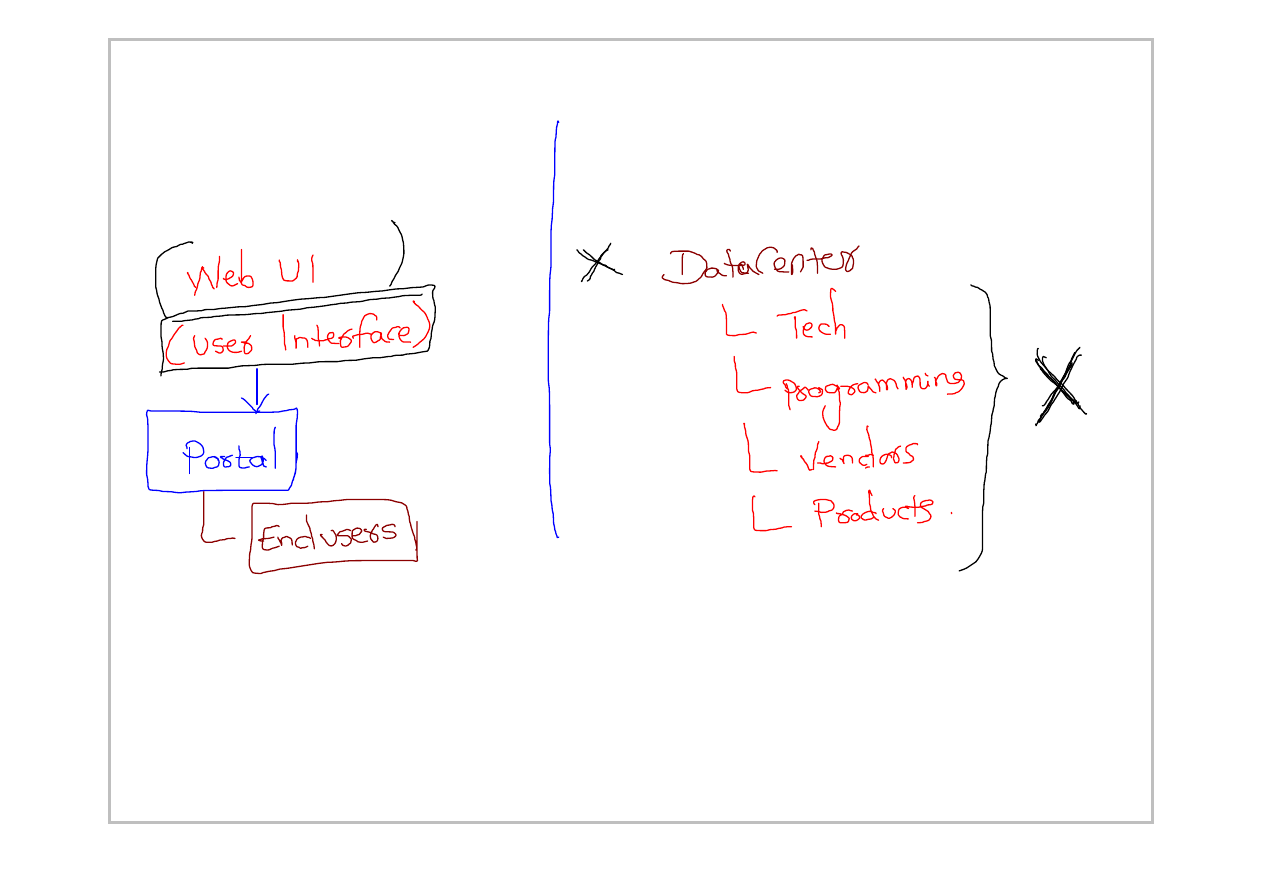 Web UI
(User Interface)
Portal
Endusers
DataCenter
Tech
Programming
Vendors
Products.